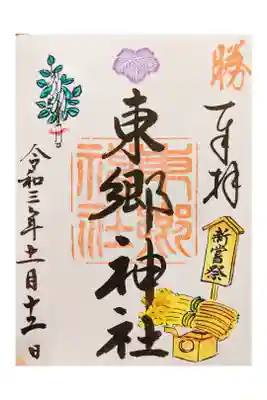 勝
奉拝
新嘗祭
東郷神社
東郷
神社
令和三年十一月十二日